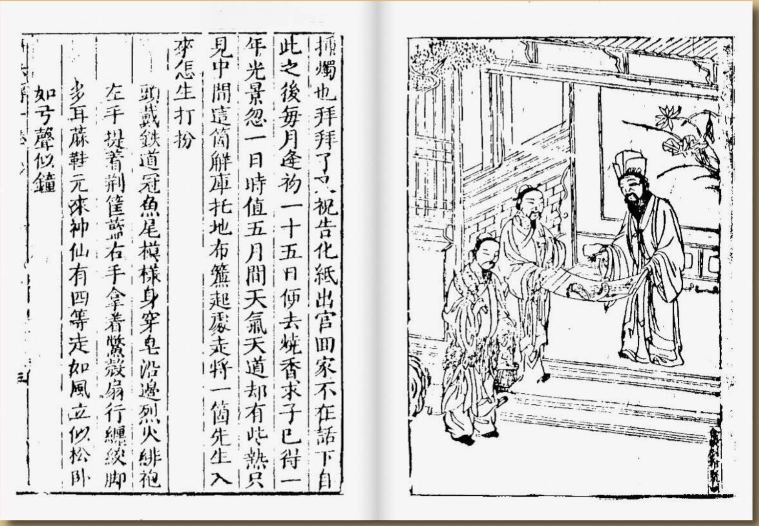 插燭也拜拜了又祝告化紙出宮囬家不在話下自
此之後每月逢初一十五日便去燒香求子已得一
年光景忽一日時值五月間天氣天道却有些熱只
見中間這箇解庫托地布簾起處走將一箇先生入
來怎生打扮
頭戴鉄道冠魚尾模樣身穿皂沿邊烈火緋袍
左手提着荆筐籃右手拿着鱉殼扇行纏絞脚
多耳蔴鞋元來神仙有四等走如風立似松卧
如弓聲似鐘
三